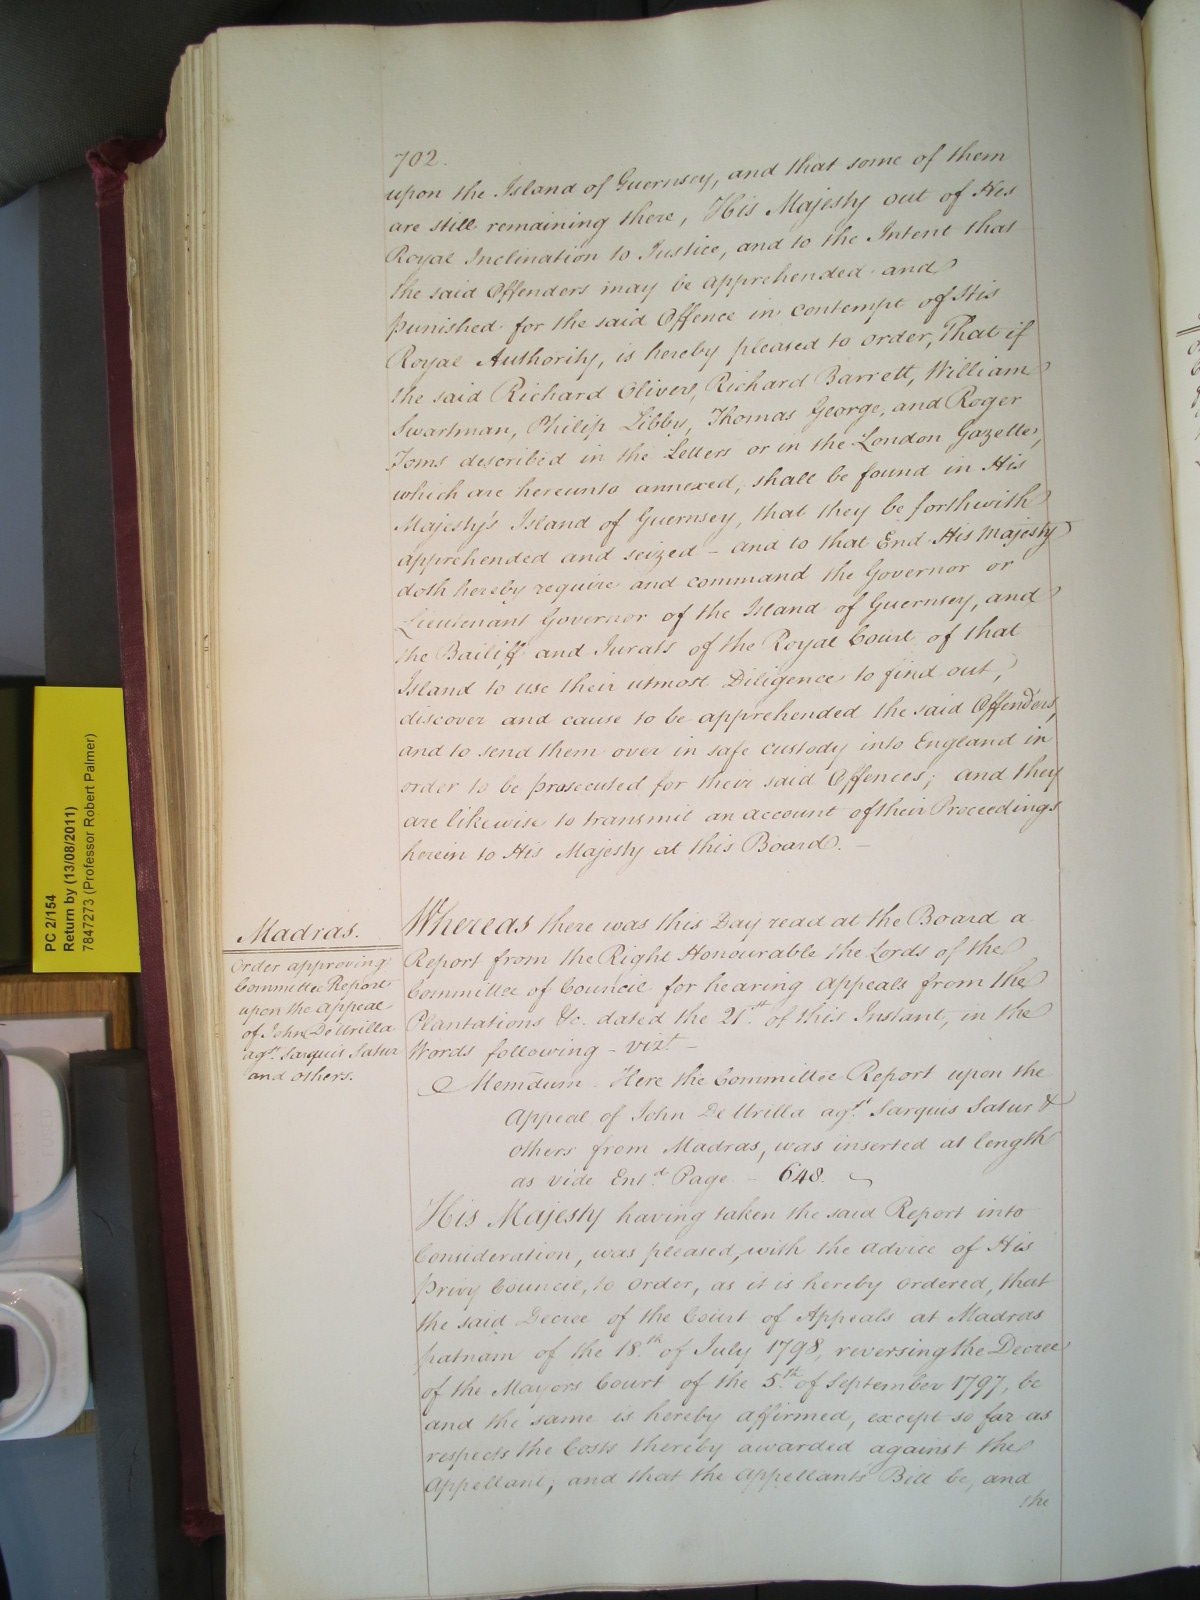 702.
upon the Island of Guernsey, and that some of them
are still remaining there, His Majesty out of His
Royal Inclination to Justice, and to the Intent that
the said Offenders may be apprehended and
punished for the said Offence in contempt of His
Royal Authority, is hereby pleased to order, That if
the said Richard Oliver, Richard Barrett, William
Swartman, Philip Libby, Thomas George, and Roger
Toms described in the Letters or in the London Gazette,
which are hereunto annexed, shall be found in His
Majesty's Island of Guernsey, that they be forthwith
apprehended and seized - and to that End His Majesty
doth hereby require and command the Governor or
Lieutenant Governor of the Island of Guernsey, and
the Bailiff and Jurats of the Royal Court of that
Island to use their utmost Diligence to find out,
discover and cause to be apprehended the said Offenders,
and to send them over in safe custody into England in
order to be prosecuted for their said Offences; and they
are likewise to transmit an account of their Proceedings
herein to His Majesty at this Board. -
Madras.
Order approving
Committee Report
upon the Appeal
of John De Urilla
agst. Sarquis Satur
and others.
Whereas there was this Day read at the Board a
Report from the Right Honourable the Lords of the
Committee of Council for hearing Appeals from the
Plantations &c. dated the 21st. of this Instant, in the
Words following - vizt -
Memdum. Here the Committee Report upon the
Appeal of John De Urilla agst. Sarquis Satur &
others from Madras, was inserted at length
as vide Entd. Page - 648.
His Majesty having taken the said Report into
Consideration, was pleased, with the advice of His
Privy Council, to order, as it is hereby ordered, that
the said Decree of the Court of Appeals at Madras
patnam of the 18th. of July 1798, reversing the Decree
of the Mayors Court of the 5th. of September 1797, be
and the same is hereby affirmed, except so far as
respects the Costs thereby awarded against the
Appellant; and that the Appellants Bill be, and
the
PC 2/154
Return by (13/08/2011)
7847273 (Professor Robert Palmer)